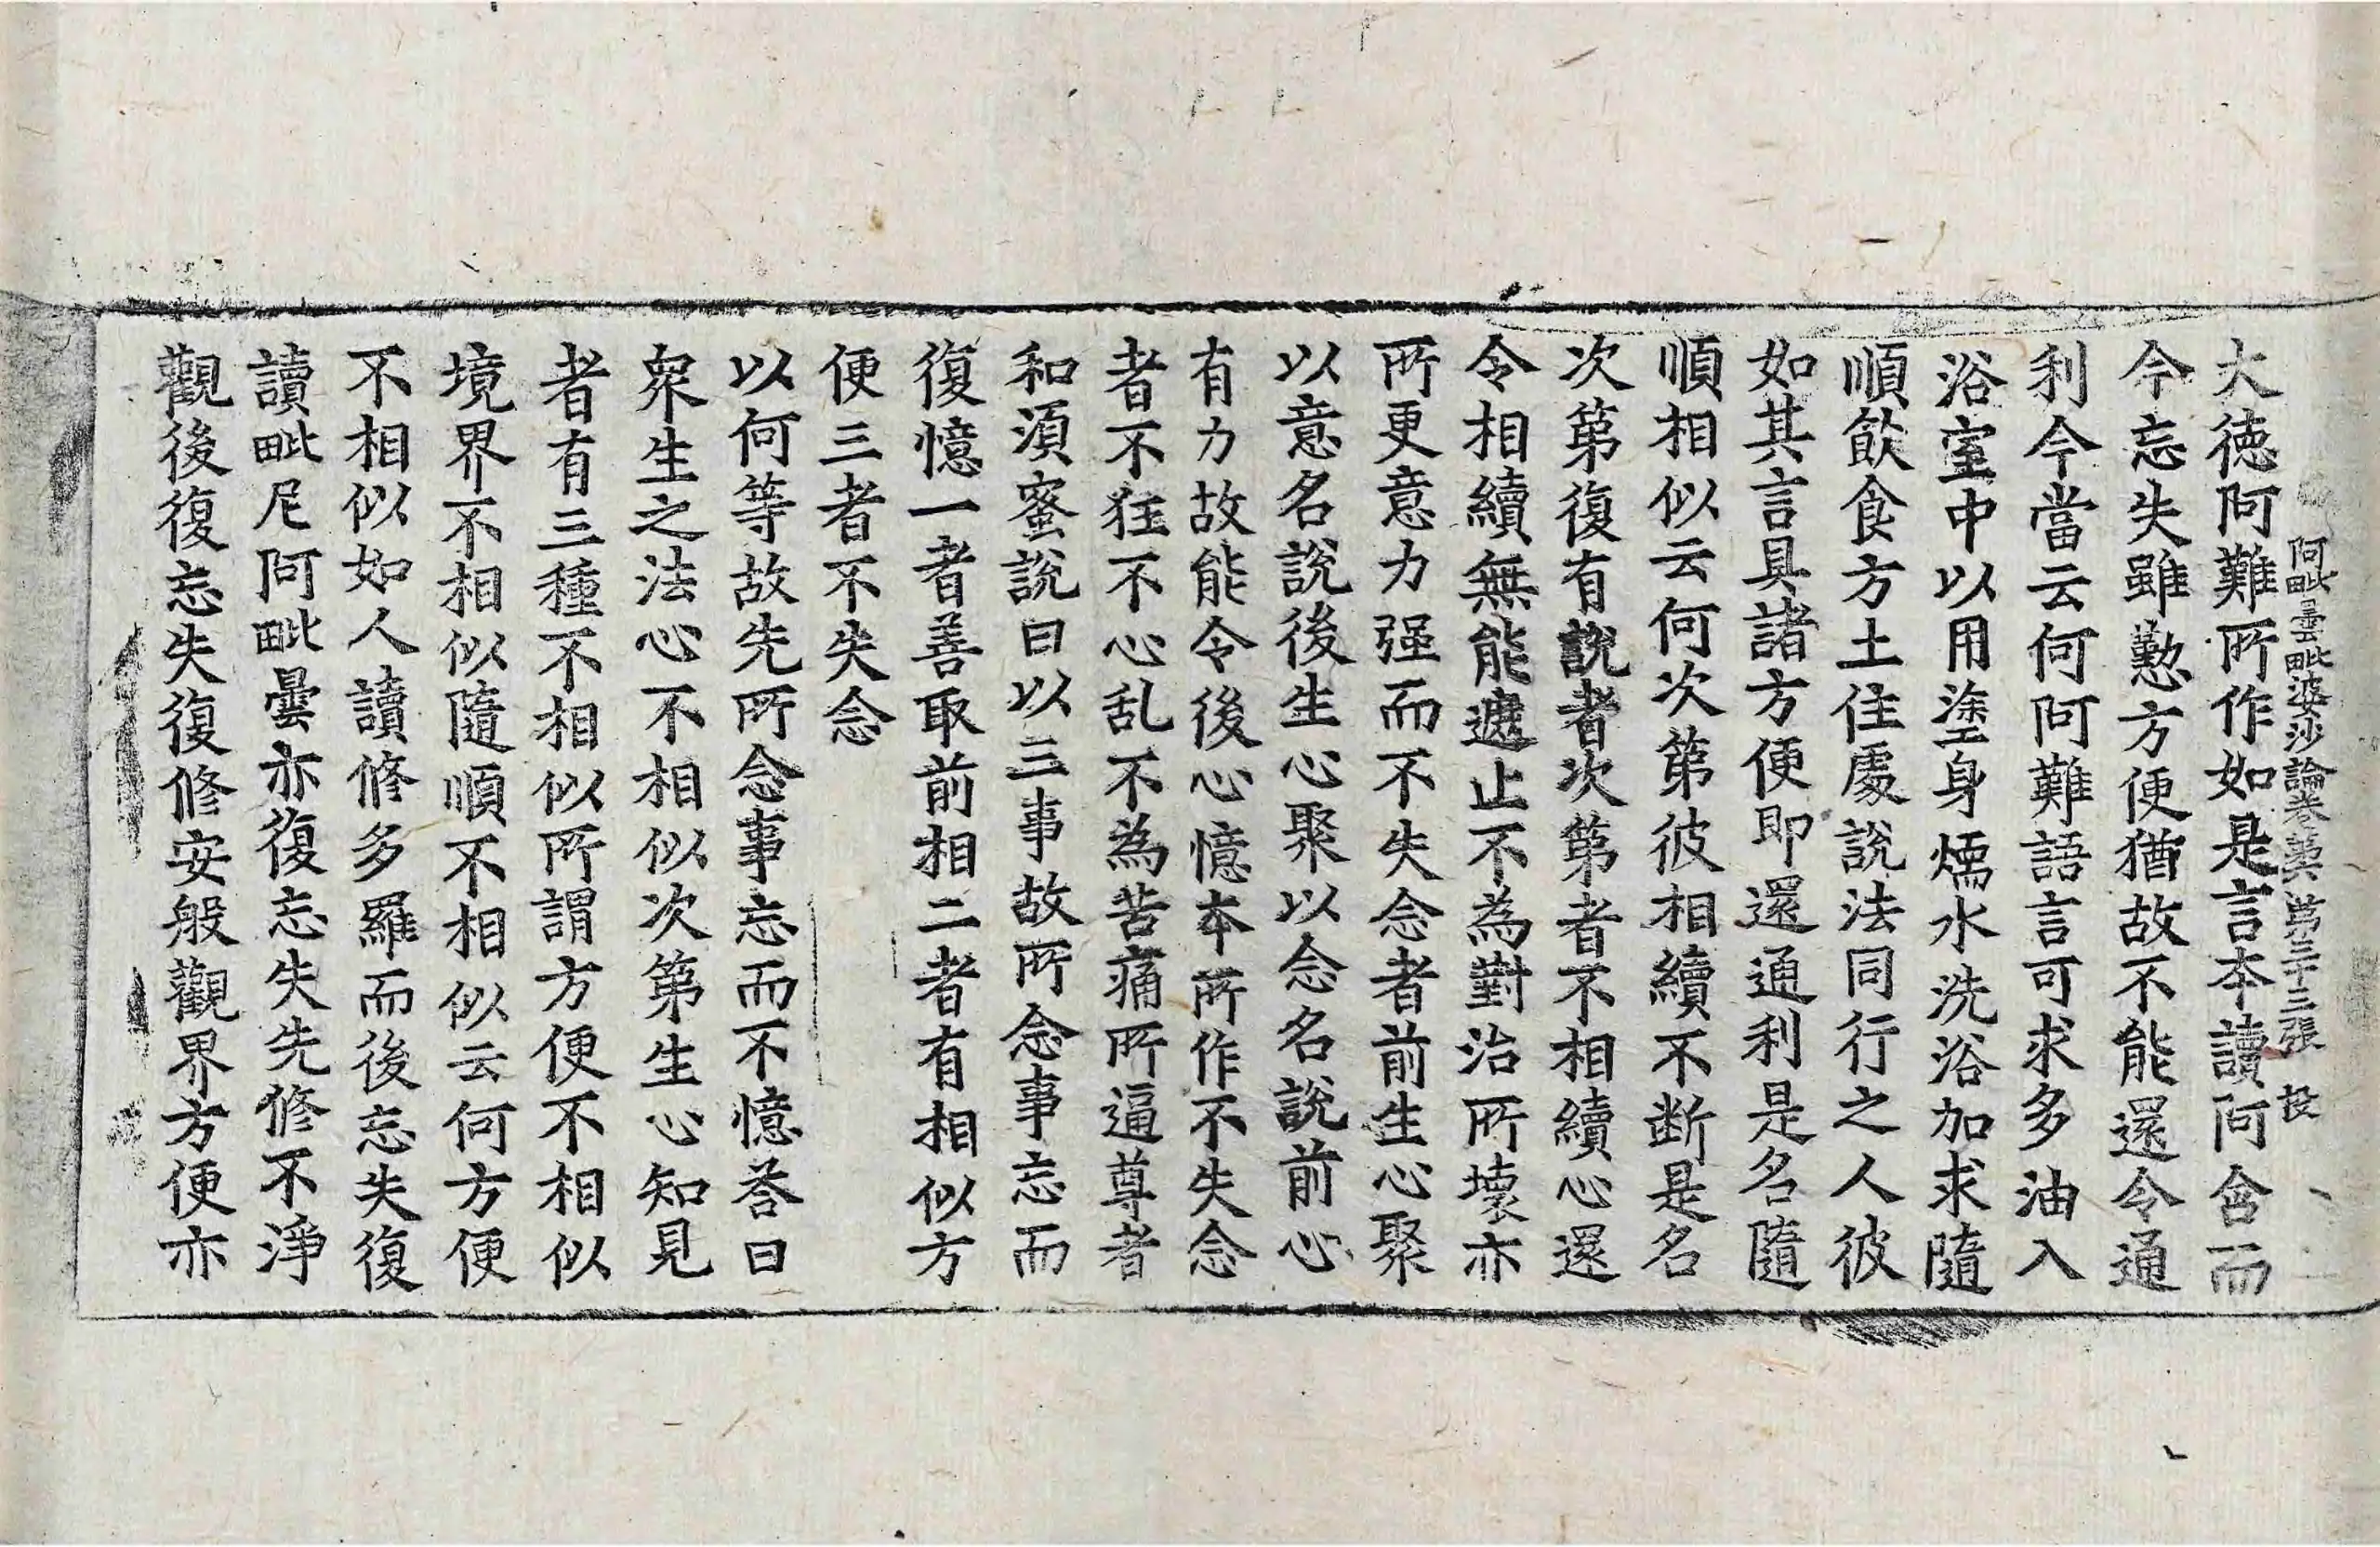 阿毗曇毗婆沙論卷第六 第三十三張 投
大德阿難所作如是言本讀阿含而
今忘失雖懃方便猶故不能還令通
利今當云何阿難語言可求多油入
浴室中以用塗身煗水洗浴加求隨
順飲食方土住處說法同行之人彼
如其言具諸方便即還通利是名隨
順相似云何次第彼相續不断是名
次第復有說者次第者不相續心還
令相續無能遮止不為對治所壞亦
所更意力强而不失念者前生心聚
以意名說後生心聚以念名說前心
有力故能令後心憶本所作不失念
者不狂不心乱不為苦痛所逼尊者
和須蜜說曰以三事故所念事忘而
復憶一者善取前相二者有相似方
便三者不失念
以何等故先所念事忘而不憶荅曰
衆生之法心不相似次第生心知見
者有三種不相似所謂方便不相似
境界不相似隨順不相似云何方便
不相似如人讀修多羅而後忘失復
讀毗尼阿毗曇亦復忘失先修不淨
觀後復忘失復修安般觀界方便亦